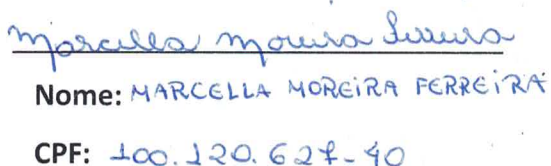 Marcella Moreira Ferreira
Nome: MARCELLA MOREIRA FERREIRA
CPF: 100.120.627-40